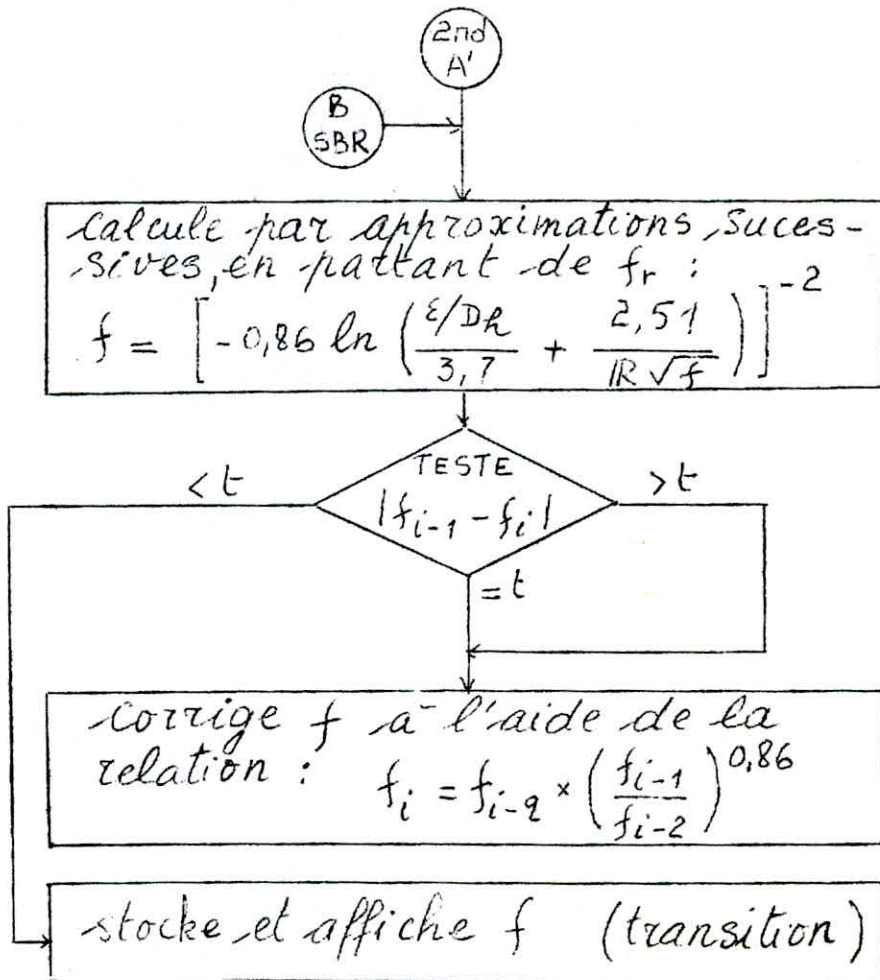 2nd
A'
B
SBR
calcule par approximations suces-
sives, en partant de fr :
f = [-0,86 ln (ε/Dh / 3,7 + 2,51 / IR √f)]^-2
TESTE
< t
> t
|f_{i-1} - f_i|
= t
corrige f à l'aide de la
relation : f_i = f_{i-2} × (f_{i-1} / f_{i-2})^0,86
stocke et affiche f (transition)